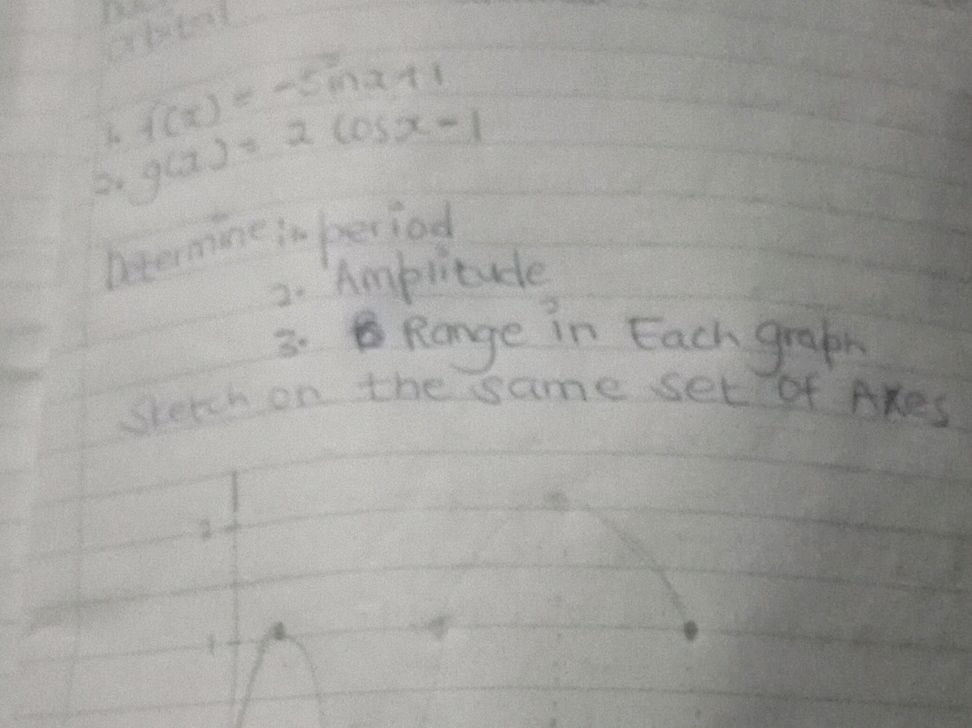 orbital
1. f(x) = -Sinx+1
2. g(x) = 2 Cosx-1
Determine 1. period
2. Amplitude
3. Range in Each graph
Sketch on the same set of Axes
2
1